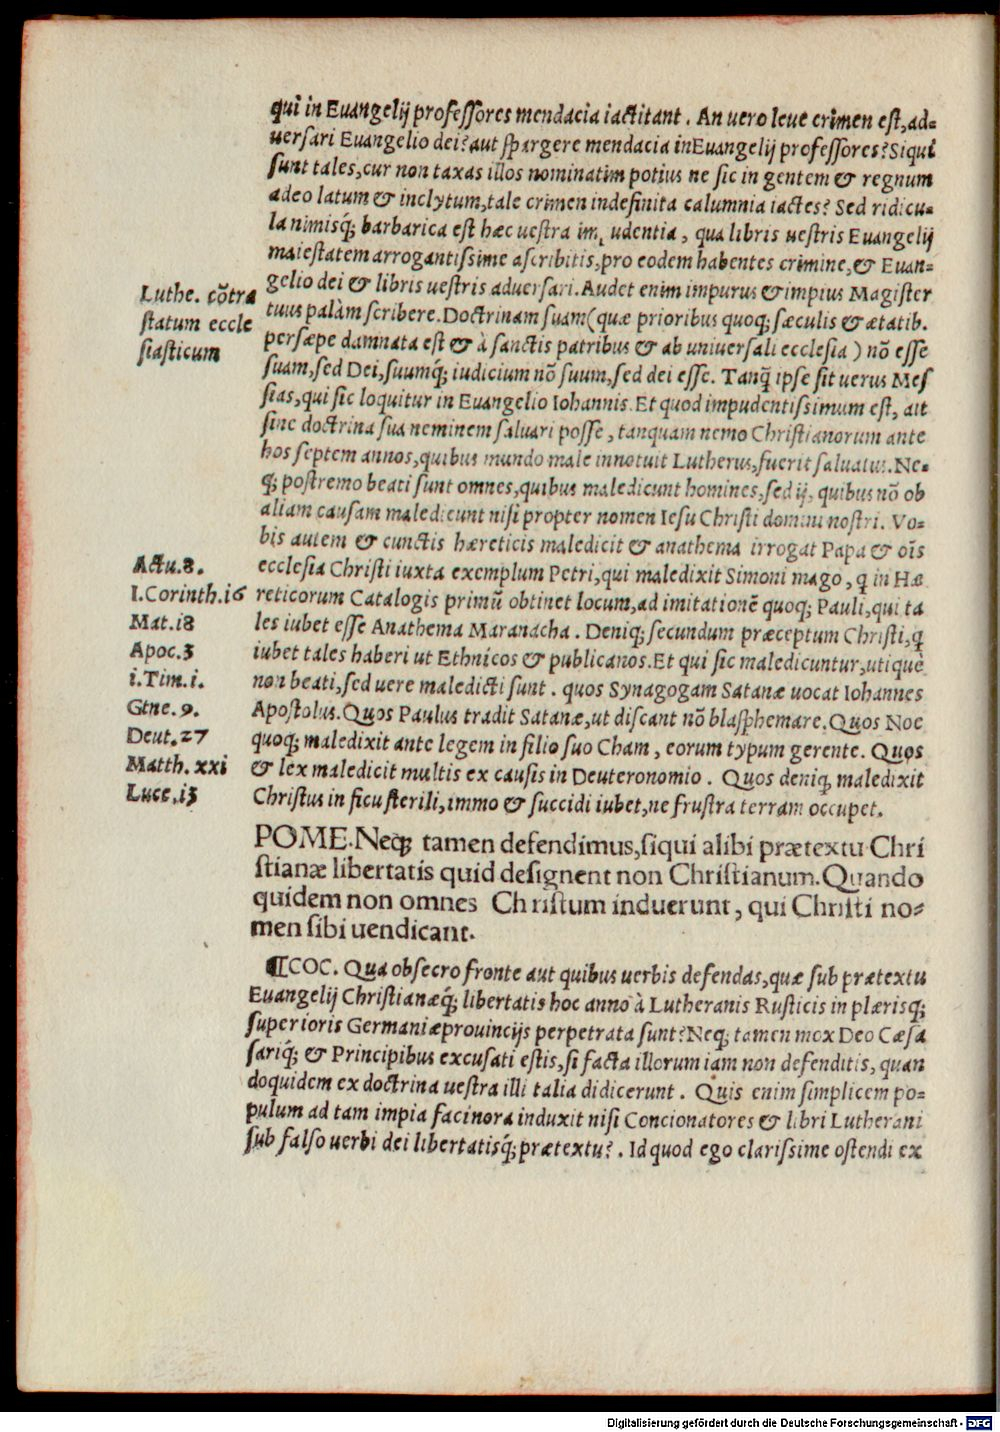 qui in Euangelij professores mendacia iactitant. An uero leue crimen est, ad=
uersari Euangelio dei? aut spargere mendacia in Euangelij professores? Si qui
sunt tales, cur non taxas illos nominatim potius ne sic in gentem & regnum
adeo latum & inclytum, tale crimen indefinita calumnia iactes? Sed ridicu=
la nimisq́; barbarica est hæc uestra im udentia, qua libris uestris Euangelij
maiestatem arrogantissime ascribitis, pro eodem habentes crimine, & Euan=
gelio dei & libris uestris aduersari. Audet enim impurus & impius Magister
Luthe. cõtra
statum eccle
siasticum
tuus palàm scribere. Doctrinam suam (quæ prioribus quoq; sæculis & ætatib.
persæpe damnata est & à sanctis patribus & ab uniuersali ecclesia) nõ esse
suam, sed Dei, suumq́; iudicium nõ suum, sed dei esse. Tanq̃ ipse sit uerus Mes
sias, qui sic loquitur in Euangelio Iohannis. Et quod impudentissimum est, ait
sine doctrina sua neminem saluari posse, tanquam nemo Christianorum ante
hos septem annos, quibus mundo male innotuit Lutherus, fuerit saluatus. Ne=
q; postremo beati sunt omnes, quibus maledicunt homines, sed ij, quibus nõ ob
aliam causam maledicunt nisi propter nomen Iesu Christi domini nostri. Vo=
bis autem & cunctis hæreticis maledicit & anathema irrogat Papa & oı̃s
ecclesia Christi iuxta exemplum Petri, qui maledixit Simoni mago, q in Hæ
Actu.8.
I.Corinth.16
reticorum Catalogis primũ obtinet locum, ad imitationẽ quoq; Pauli, qui ta
les iubet esse Anathema Maranacha. Deniq; secundum præceptum Christi, q
Mat.18
iubet tales haberi ut Ethnicos & publicanos. Et qui sic maledicuntur, utiquè
Apoc.3
non beati, sed uere maledicti sunt. quos Synagogam Satanæ uocat Iohannes
i.Tim.i.
Apostolus. Quos Paulus tradit Satanæ, ut discant nõ blasphemare. Quos Noe
Gene.9.
quoq; maledixit ante legem in filio suo Cham, eorum typum gerente. Quos
Deut.27
& lex maledicit multis ex causis in Deuteronomio. Quos deniq; maledixit
Matth.xxi
Luce,13
Christus in ficu sterili, immo & succidi iubet, ne frustra terram occupet.
POME. Neq; tamen defendimus, siqui alibi prætextu Chri
stianæ libertatis quid designent non Christianum. Quando
quidem non omnes Christum induerunt, qui Christi no=
men sibi uendicant.
¶COC. Qua obsecro fronte aut quibus uerbis defendas, quæ sub prætextu
Euangelij Christianæq́; libertatis hoc anno à Lutheranis Rusticis in plærisq;
superioris Germaniæ prouincijs perpetrata sunt? Neq; tamen mox Deo Cæsa
sariq́; & Principibus excusati estis, si facta illorum iam non defenditis, quan
doquidem ex doctrina uestra illi talia didicerunt. Quis enim simplicem po=
pulum ad tam impia facinora induxit nisi Concionatores & libri Lutherani
sub falso uerbi dei libertatisq́; prætextu?. Id quod ego clarissime ostendi ex
Digitalisierung gefördert durch die Deutsche Forschungsgemeinschaft - DFG